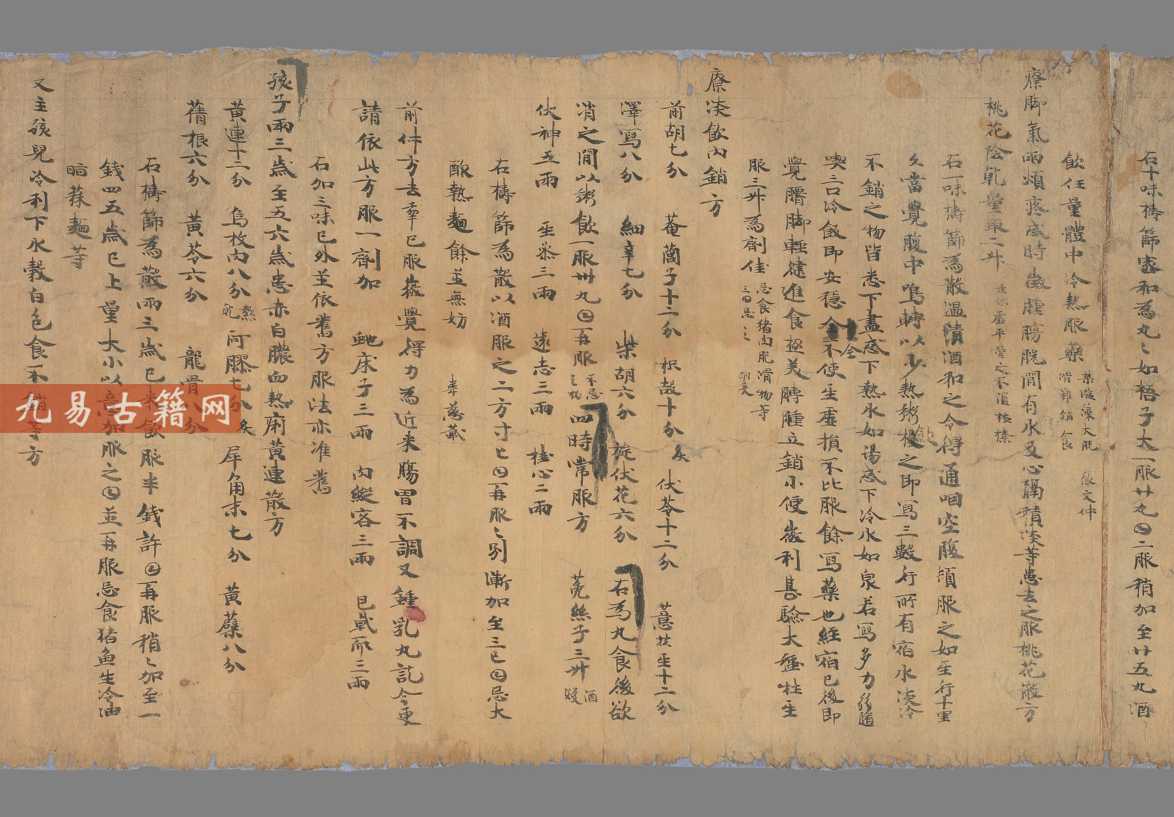 石十味擣篩蜜和為丸丸如梧子大一服廿丸日二服稍加至廿五丸酒
飲任量體中冷熱服藥
療脚氣兩煩疼或時虛腫膀胱間有水及心膈積淡等患去之服桃花散方
桃花陰乾量取二升
石一味擣篩為散溫清酒和之令得通咽空腹頓服之如至行十里
久當覺腹中鳴轉以少熱粥投之即寫三數行所有宿水淡冷
不銷之物皆悉下盡或下熱水如湯或下冷水如泉若寫多力
喫三口冷飯即安穩不使至虛損不比服餘寫藥也經宿已後即
覺腰脚輕健進食極美脾腫立銷小便微利甚驗大
服三升為劑佳 忌食猪肉肥滑物等
療淡飲內銷方
前胡七分 菴䕡子十二分 枳殼十分炙 伏苓十二分 薏苡生十二分
澤寫八分 細辛七分 柴胡六分 旋伏花六分 石為丸食後欲
消之間以粥飲一服卅丸日再服 四時常服方 菟絲子三升
伏神五兩 三兩 遠志三兩 桂心二兩
石擣篩為散以酒服之二方寸匕日再服服別漸加至三匕日忌大
酸熱麵餘並無妨
前件方去年已服微覺得力為近來腸胃不調又鍾乳丸訖今更
請依此方服一劑加 虵床子三兩 肉縱容三兩 巴戟三兩
石加三味已外並依舊方服法亦准舊
孩子兩三歲至五六歲患赤白膿血熱痢黃連散方
黃連十二分 烏梅肉八分熬 阿膠七分炙 犀角末七分 黃蘗八分
蒨根六分 黃芩六分 龍骨八分
石擣篩為散兩三歲已來飲服半錢許日再服稍稍加至一
錢四五歲已上量大小以意加服之日並再服忌食猪魚生冷油
麵等
又主孩兒冷利下水穀白色食不消等方
九易古籍网